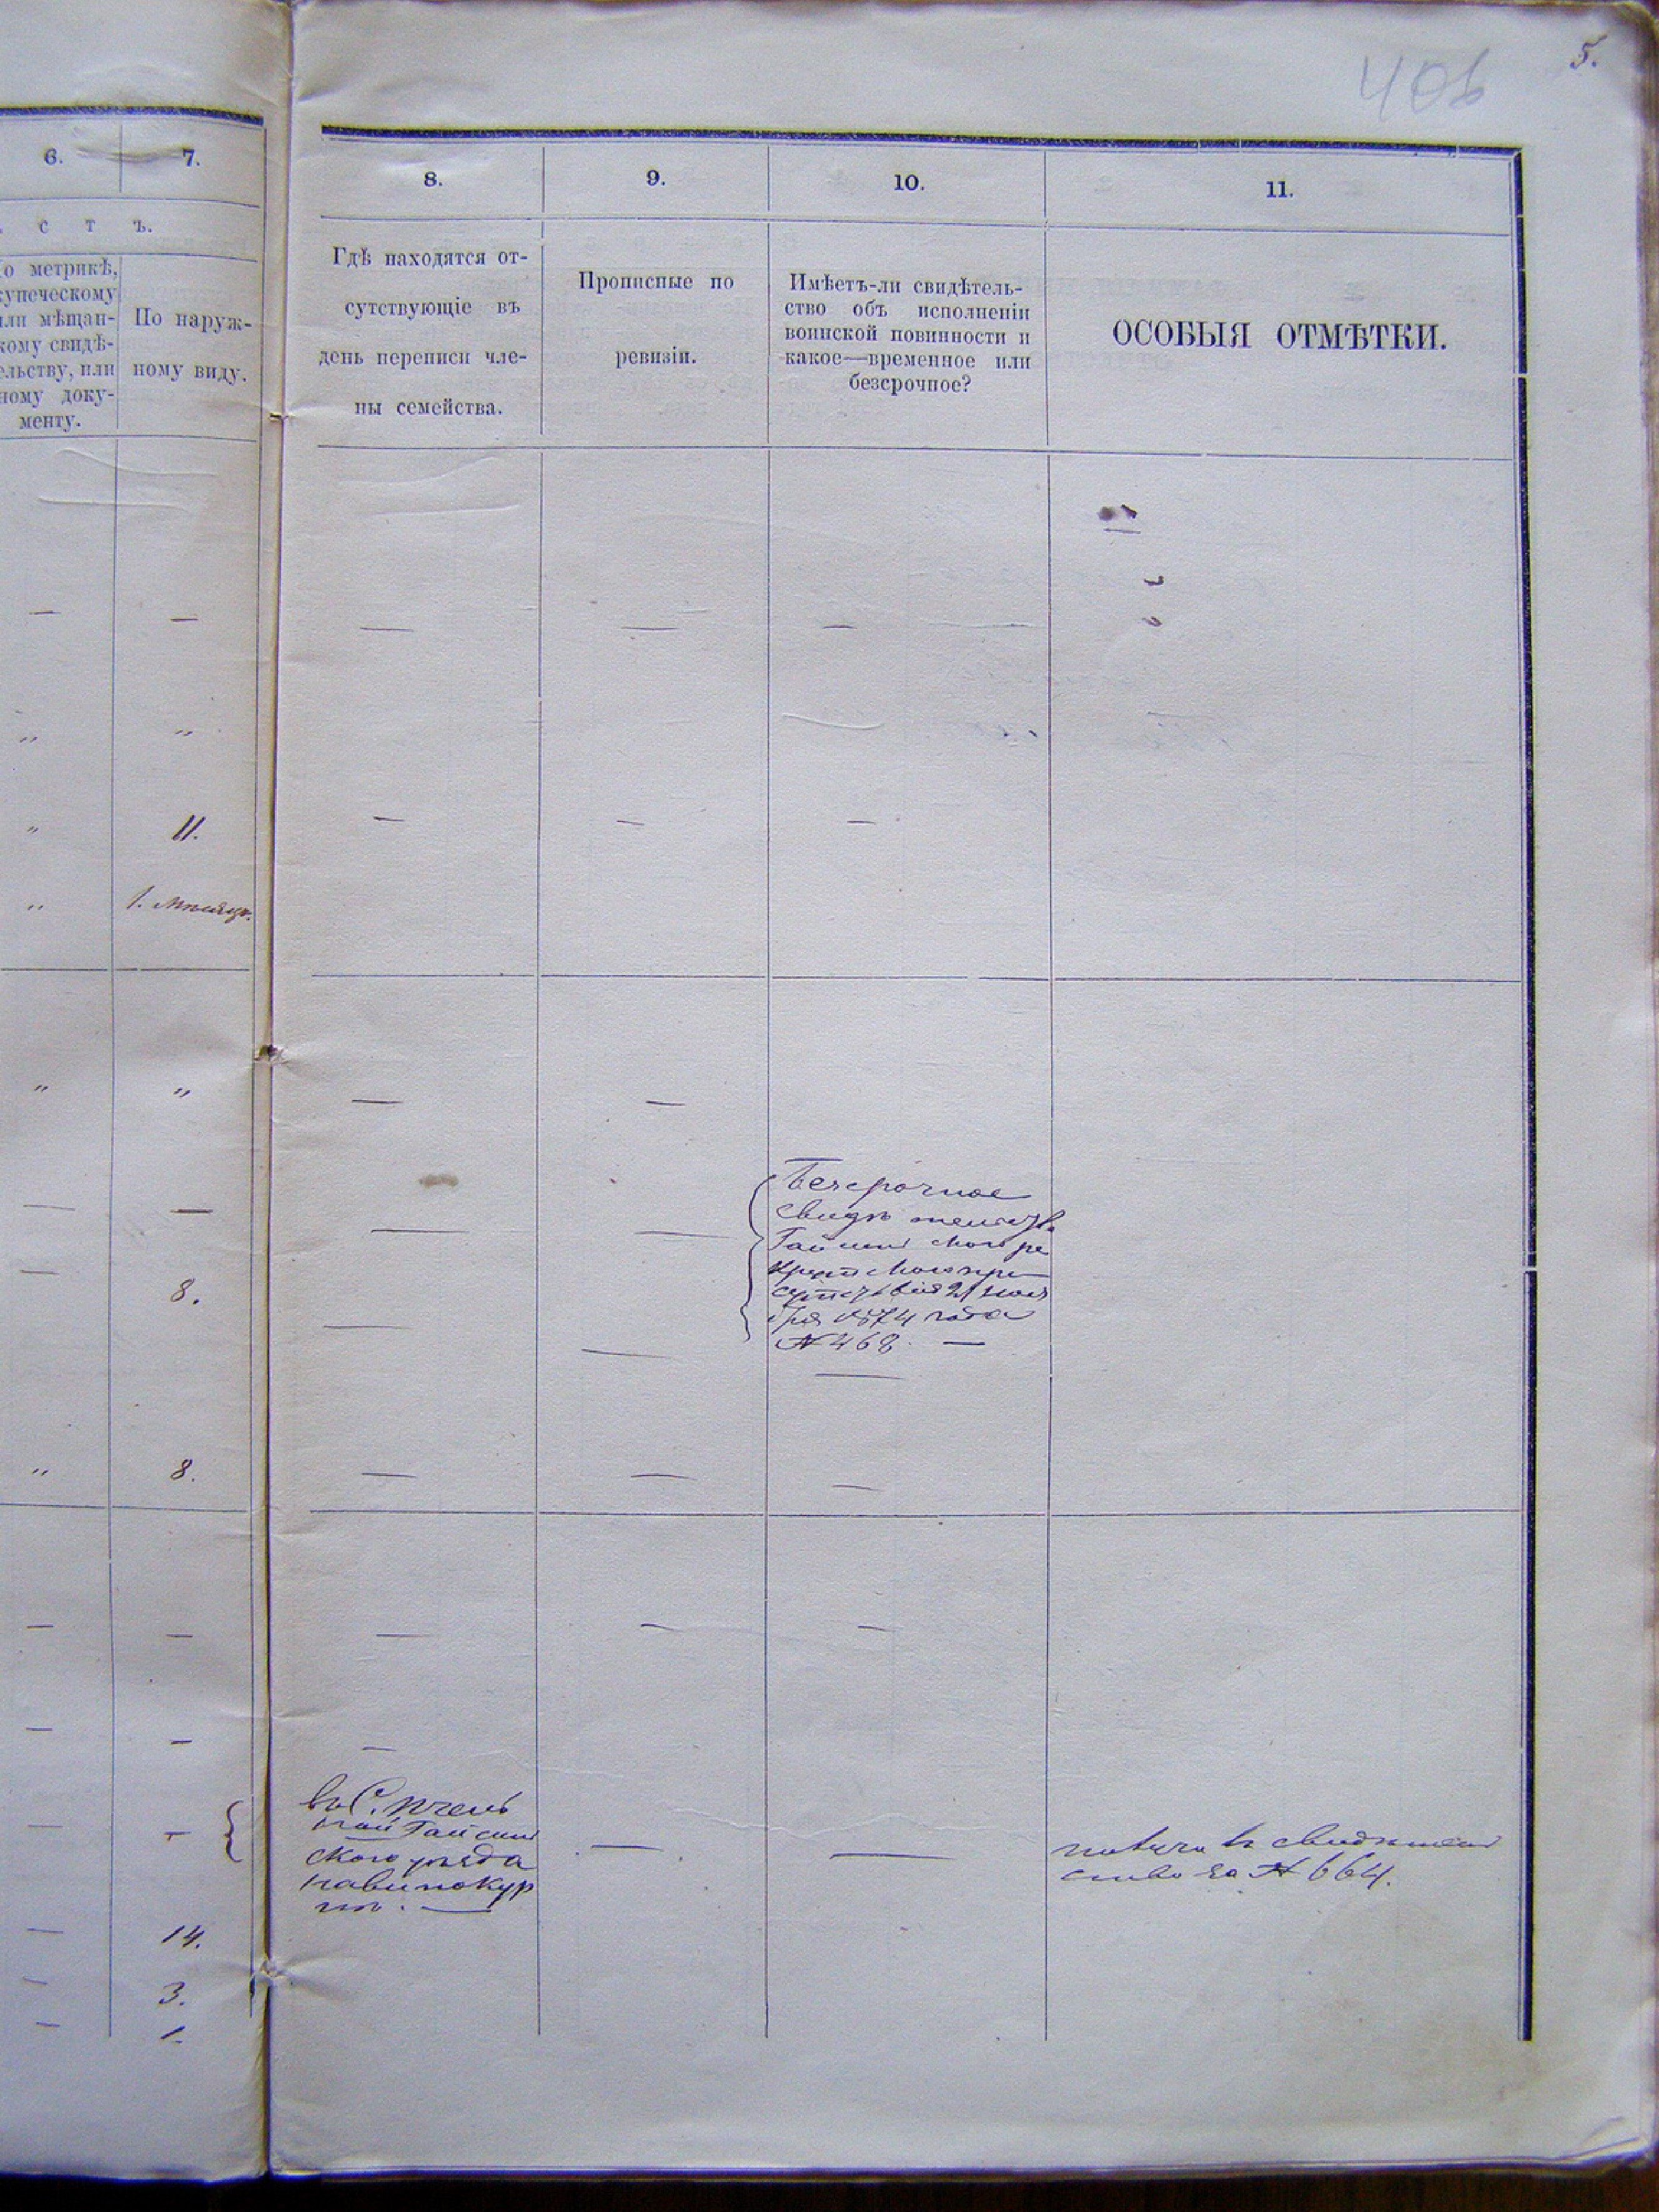 406
5.
6.
7.
с т ъ.
о метрикѣ,
купеческому
или мѣщан-
кому свидѣ-
ельству, или
ному доку-
менту.
По наруж-
ному виду.
8.
9.
10.
11.
Гдѣ находятся от-
сутствующіе въ
день переписи чле-
ны семейства.
Прописные по
ревизіи.
Имѣетъ-ли свидѣтель-
ство объ исполненіи
воинской повинности и
какое—временное или
безсрочное?
ОСОБЫЯ ОТМѢТКИ.
— — — — —
„ „
„ 11. — — —
„ 1. Мѣсяцъ.
„ „ — —
— — — —
Безсрочное
свидѣтельство
Гайсинского ре
крутского при
сутствія 21 ноя
бря 1874 года
№ 468. —
— 8. — — —
„ 8. — — —
— — — — —
— — —
— —
въ С.
ной Гайсин
ского уѣзда
на винокур
нѣ. —
— —
свидѣтель
ство за № 664.
— 14.
— 3.
— 1.